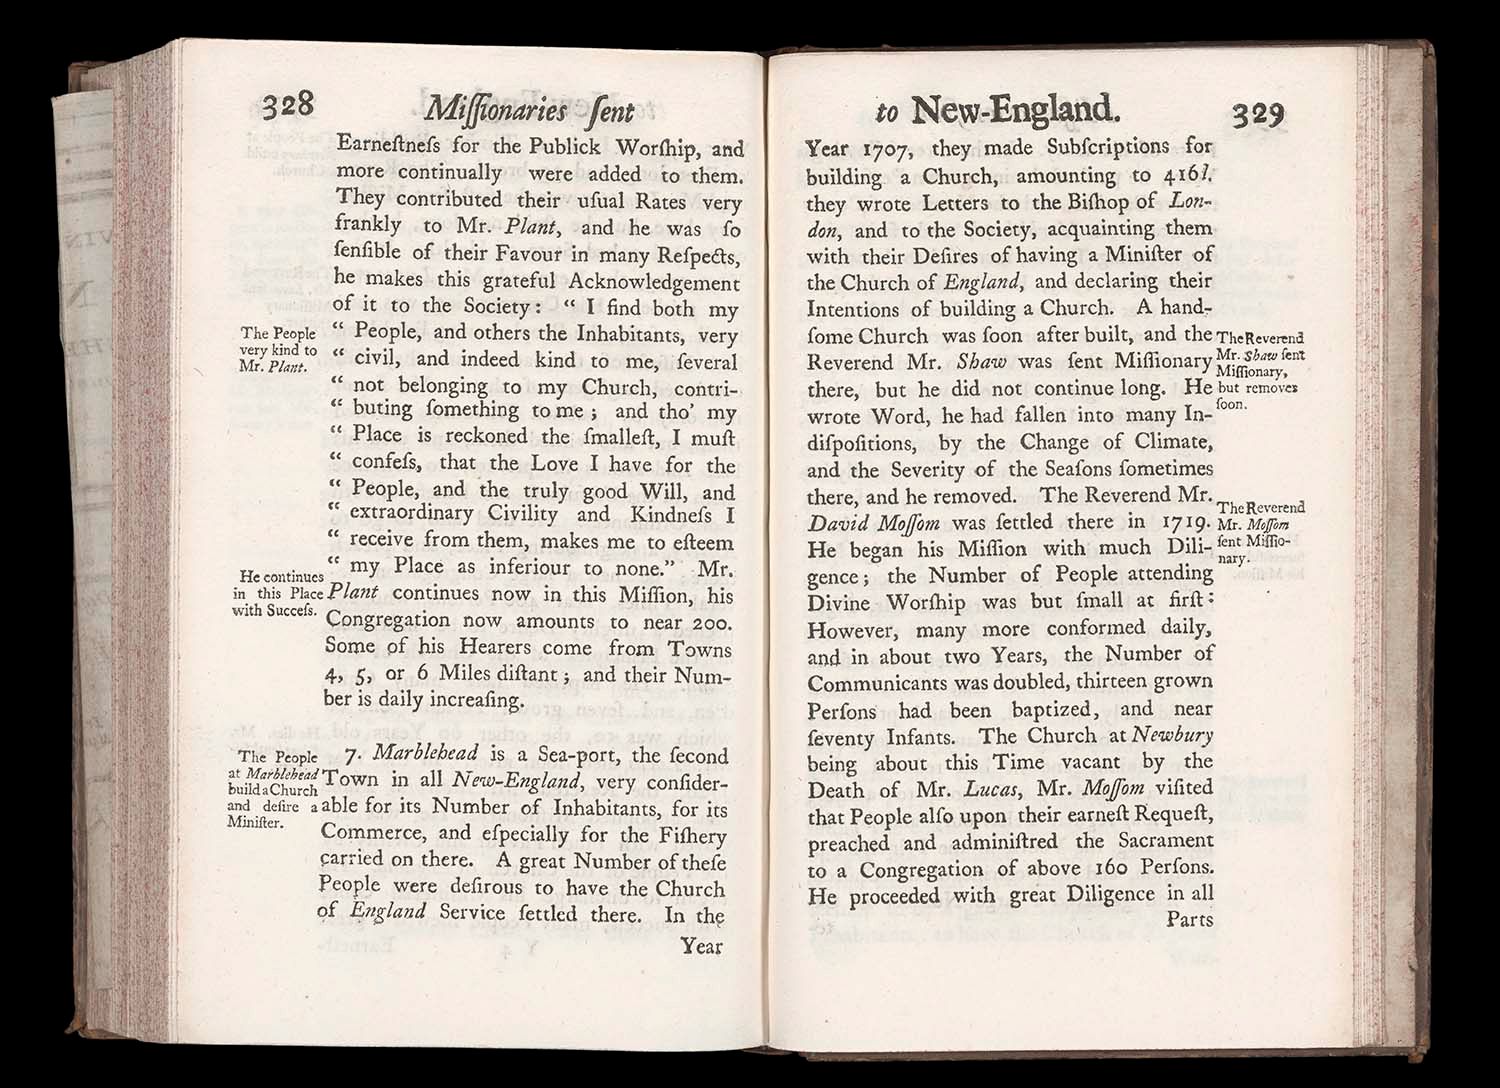 328
Miſſionaries ſent
Earneſtneſs for the Publick Worſhip, and
more continually were added to them.
They contributed their uſual Rates very
frankly to Mr. Plant, and he was ſo
ſenſible of their Favour in many Reſpects,
he makes this grateful Acknowledgement
of it to the Society: “ I find both my
“ People, and others the Inhabitants, very
“ civil, and indeed kind to me, ſeveral
“ not belonging to my Church, contri-
“ buting ſomething to me; and tho’ my
“ Place is reckoned the ſmalleſt, I muſt
“ confeſs, that the Love I have for the
“ People, and the truly good Will, and
“ extraordinary Civility and Kindneſs I
“ receive from them, makes me to eſteem
“ my Place as inferiour to none.” Mr.
Plant continues now in this Miſſion, his
Congregation now amounts to near 200.
Some of his Hearers come from Towns
4, 5, or 6 Miles diſtant; and their Num-
ber is daily increaſing.
7. Marblehead is a Sea-port, the ſecond
Town in all New-England, very conſider-
able for its Number of Inhabitants, for its
Commerce, and eſpecially for the Fiſhery
carried on there. A great Number of theſe
People were deſirous to have the Church
of England Service ſettled there. In the
Year
The People
very kind to
Mr. Plant.
He continues
in this Place
with Succeſs.
The People
at Marblehead
build a Church
and deſire a
Miniſter.
to New-England.
329
Year 1707, they made Subſcriptions for
building a Church, amounting to 416l.
they wrote Letters to the Biſhop of Lon-
don, and to the Society, acquainting them
with their Deſires of having a Miniſter of
the Church of England, and declaring their
Intentions of building a Church. A hand-
ſome Church was ſoon after built, and the
Reverend Mr. Shaw was ſent Miſſionary
there, but he did not continue long. He
wrote Word, he had fallen into many In-
diſpoſitions, by the Change of Climate,
and the Severity of the Seaſons ſometimes
there, and he removed. The Reverend Mr.
David Moſſom was ſettled there in 1719.
He began his Miſſion with much Dili-
gence; the Number of People attending
Divine Worſhip was but ſmall at firſt:
However, many more conformed daily,
and in about two Years, the Number of
Communicants was doubled, thirteen grown
Perſons had been baptized, and near
ſeventy Infants. The Church at Newbury
being about this Time vacant by the
Death of Mr. Lucas, Mr. Moſſom viſited
that People alſo upon their earneſt Requeſt,
preached and adminiſtred the Sacrament
to a Congregation of above 160 Perſons.
He proceeded with great Diligence in all
Parts
The Reverend
Mr. Shaw ſent
Miſſionary,
but removes
ſoon.
The Reverend
Mr. Moſſom
ſent Miſſio-
nary.